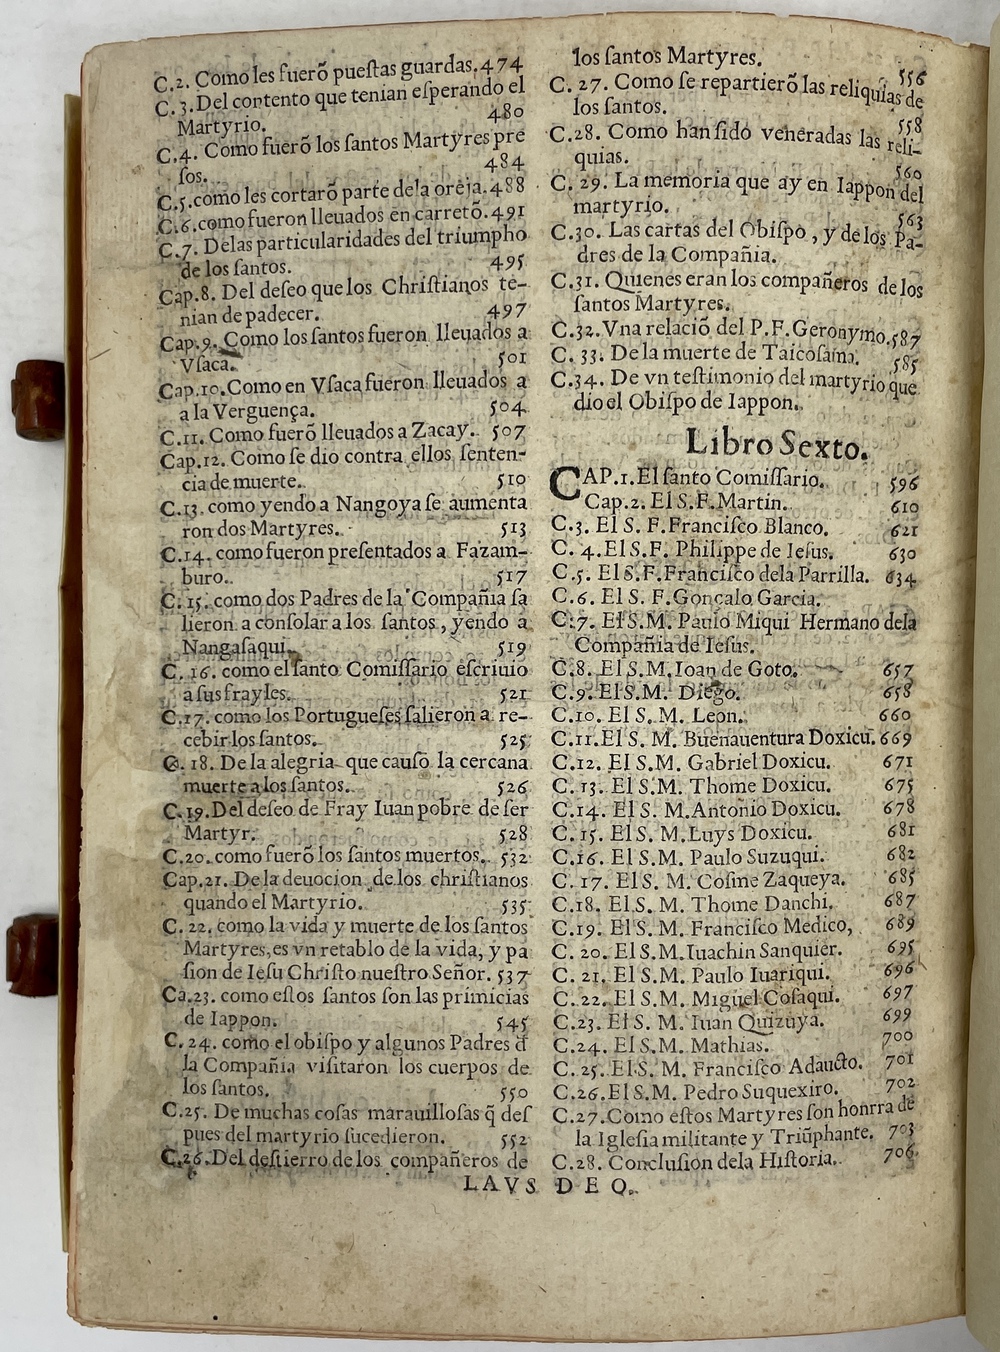 C.2. Como les fuerõ pueſtas guardas. 474
C. 3. Del contento que tenian eſperando el
Martyrio. 480
C.4. Como fuerõ los ſantos Martyres pre
ſos. 484
C.5. como les cortarõ parte dela oreja. 488
C.6. como fueron lleuados en carretõ. 491
C.7. Delas particularidades del triumpho
de los ſantos. 495
Cap.8. Del deſeo que los Chriſtianos te-
nian de padecer. 497
Cap.9. Como los ſantos fueron lleuados a
Vſaca. 501
Cap.10. Como en Vſaca fueron lleuados a
a la Verguença. 504
C.11. Como fuerõ lleuados a Zacay. 507
Cap.12. Como ſe dio contra ellos ſenten-
cia de muerte. 510
C.13. como yendo a Nangoya ſe aumenta
ron dos Martyres. 513
C.14. como fueron preſentados a Fazam-
buro. 517
C. 15. como dos Padres de la Compañia ſa
lieron a conſolar a los ſantos, yendo a
Nangaſaqui. 519
C. 16. como el ſanto Comiſſario eſcriuio
a ſus frayles. 521
C.17. como los Portugueſes ſalieron a re-
cebir los ſantos. 525
C. 18. De la alegria que cauſo la cercana
muerte a los ſantos. 526
C.19. Del deſeo de Fray Iuan pobre de ſer
Martyr. 528
C.20. como fuerõ los ſantos muertos. 532
Cap.21. De la deuocion de los chriſtianos
quando el Martyrio. 535
C. 22. como la vida y muerte de los ſantos
Martyres, es vn retablo de la vida, y pa
ſion de Ieſu Chriſto nueſtro Señor. 537
Ca.23. como eſtos ſantos ſon las primicias
de Iappon. 545
C. 24. como el obiſpo y algunos Padres d̃
la Compañia viſitaron los cuerpos de
los ſantos. 550
C.25. De muchas coſas marauilloſas q̃ deſ
pues del martyrio ſucedieron. 552
C.26. Del deſtierro de los compañeros de
los ſantos Martyres. 556
C. 27. Como ſe repartierõ las reliquias de
los ſantos. 558
C.28. Como han ſido veneradas las reli-
quias. 560
C. 29. La memoria que ay en Iappon del
martyrio. 563
C.30. Las cartas del Obiſpo, y de los Pa-
dres de la Compañia.
C.31. Quienes eran los compañeros de los
ſantos Martyres.
C.32. Vna relaciõ del P.F. Geronymo. 587
C. 33. De la muerte de Taicoſama. 585
C.34. De vn teſtimonio del martyrio que
dio el Obiſpo de Iappon.
Libro Sexto.
CAP.1. El ſanto Comiſſario. 596
Cap.2. El S.F. Martin. 610
C.3. El S. F. Franciſco Blanco. 621
C. 4. El S.F. Philippe de Ieſus. 630
C.5. El S.F. Franciſco dela Parrilla. 634
C.6. El S. F. Gonçalo Garcia.
C.7. El S.M. Paulo Miqui Hermano dela
Compañia de Ieſus.
C.8. El S.M. Ioan de Goto. 657
C.9. El S.M. Diego. 658
C.10. El S. M. Leon. 660
C.11. El S. M. Buenauentura Doxicu. 669
C.12. El S. M. Gabriel Doxicu. 671
C. 13. El S.M. Thome Doxicu. 675
C.14. El S. M. Antonio Doxicu. 678
C. 15. El S. M. Luys Doxicu. 681
C.16. El S.M. Paulo Suzuqui. 682
C. 17. El S. M. Coſme Zaqueya. 685
C.18. El S. M. Thome Danchi. 687
C.19. El S. M. Franciſco Medico, 689
C. 20. El S.M. Iuachin Sanquier. 695
C. 21. El S.M. Paulo Iuariqui. 696
C. 22. El S.M. Miguel Coſaqui. 697
C.23. El S. M. Iuan Quizuya. 699
C.24. El S.M. Mathias. 700
C. 25. El S. M. Franciſco Adaucto. 701
C.26. El S.M. Pedro Suquexiro. 702
C.27. Como eſtos Martyres ſon honrra de
la Igleſia militante y Triũphante. 703
C.28. Concluſion dela Hiſtoria. 706
LAVS DEO.